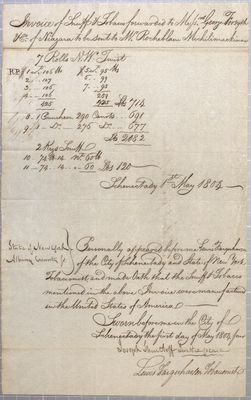 Invoice of Snuff & Tobacco forwarded to Messrs George Forsyth
& Co. of Niagara to be sent to Mr. Rocheblave Michilimackinac
7 Rolls N. W. Twist
1 - 106 lb 5 - 95 lb
2 - 107 6 - 99
3 - 106 7 - 95
4 - 106
425 lb 714
8 - 1 Puncheon 290 Carrots - 691
9 - 1 Do - 276 Do - 677
lb 2082
2 Kegs Snuff
10 - 74 - 14 Nt. 60 lb
11 - 74 - 14 - 60 lbs 120
Schenectady 1st May 1803
State of New York
Albany County
Personally appeared before me Lewis Farquharson
of the City of Schenectady and State of New York
Tobacconist, and made Oath that the Snuff & Tobacco
mentioned in the above Invoice was manufactured
in the United States of America
Sworn before me in the City of
Schenectady the first day of May 1803
Joseph
Lewis Farquharson Tobacconist